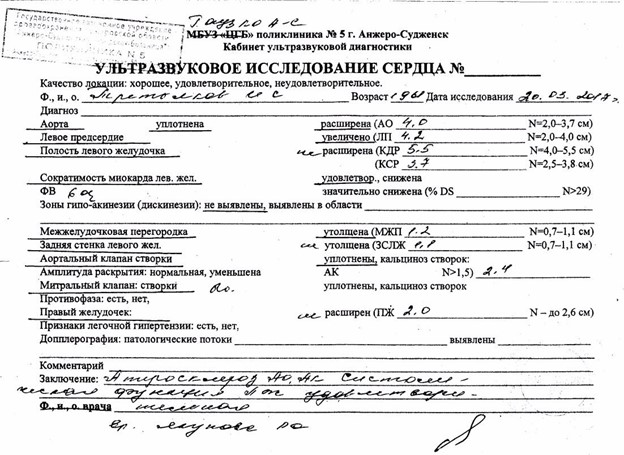 ГАУЗ КО А-С
МБУЗ «ЦГБ» поликлиника № 5 г. Анжеро-Судженск
Кабинет ультразвуковой диагностики
УЛЬТРАЗВУКОВОЕ ИССЛЕДОВАНИЕ СЕРДЦА №
Качество локации: хорошее, удовлетворительное, неудовлетворительное.
Ф., и., о. Возраст 1961 Дата исследования 20.03.2017г.
Диагноз
Аорта уплотнена расширена (АО 4,0 N=2,0–3,7 см)
Левое предсердие увеличено (ЛП 4.2 N=2,0–4,0 см)
Полость левого желудочка не расширена (КДР 5.5 N=4,0–5,5 см)
(КСР 3.7 N=2,5–3,8 см)
Сократимость миокарда лев. жел. удовлетвор., снижена
ФВ значительно снижена (% DS N>29)
Зоны гипо-акинезии (дискинезии): не выявлены, выявлены в области
Межжелудочковая перегородка утолщена (МЖП 1.2 N=0,7–1,1 см)
Задняя стенка левого жел. не утолщена (ЗСЛЖ 1.1 N=0,7–1,1 см)
Аортальный клапан створки уплотнены, кальциноз створок:
Амплитуда раскрытия: нормальная, уменьшена АК N>1,5) 2.4
Митральный клапан: створки уплотнены, кальциноз створок
Противофаза: есть, нет,
Правый желудочек: не расширен (ПЖ 2.0 N – до 2,6 см)
Признаки легочной гипертензии: есть, нет,
Допплерография: патологические потоки выявлены
Комментарий
Заключение: Атеросклероз Ао, Ак Систоли-
ческая функция ЛЖ удовлетвори-
Ф., и., о. врача тельная